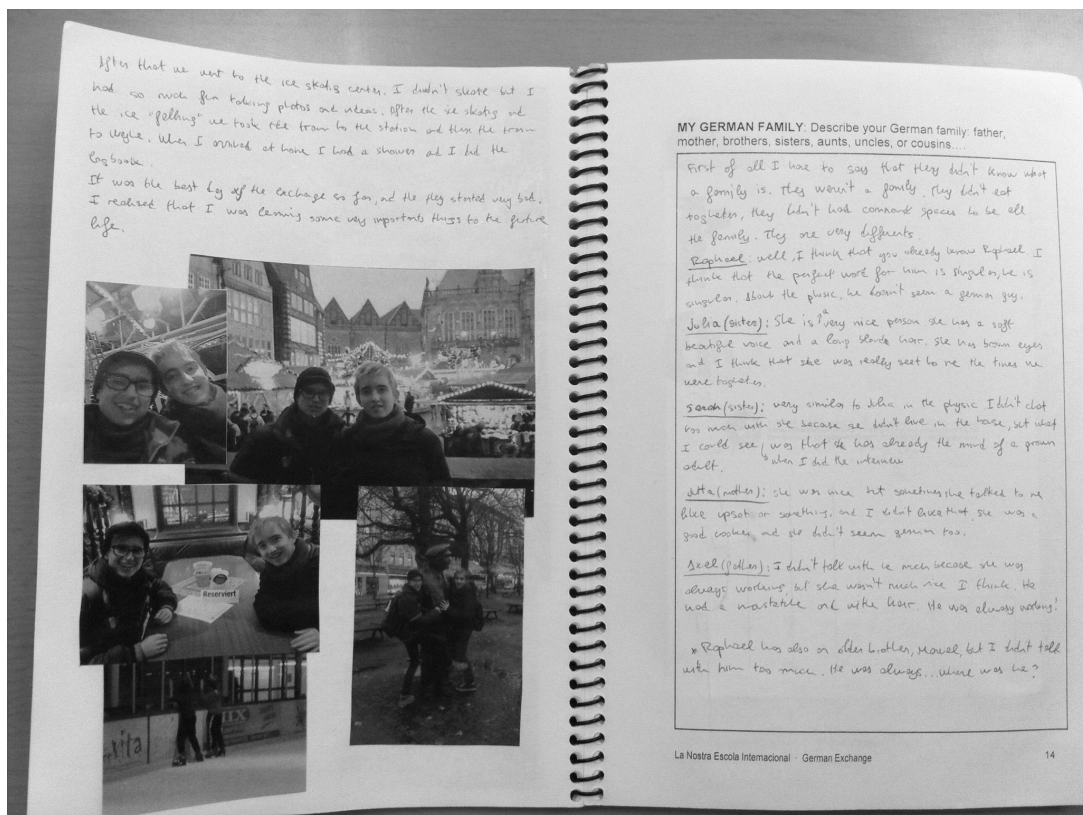 After that we went to the ice skating center. I didn't skate but I
had so much fun taking photos and videos. After the ice skating and
the ice "falling" we took the tram to the station and then the train
to Weyhe. When I arrived at home I had a shower and I did the
logbook.
It was the best day of the exchange so far, and the day started very bad.
I realised that I was learning some very importants things to the future
life.
Reserviert
MY GERMAN FAMILY: Describe your German family: father,
mother, brothers, sisters, aunts, uncles, or cousins....
First of all I have to say that they didn't know what
a family is. They weren't a family. They didn't eat
togheter, they didn't had commond spaces to be all
the family. They are very differents.
Raphael: well, I think that you already know Raphael. I
think that the perfect word for him is singular, he is
singular. About the phisic, he doesn't seem a german guy.
Julia (sister): She is a very nice person she has a soft
beautiful voice and a long blonde hair. She has brown eyes
and I think that she was really to me the times we
were togheter.
Sarah (sister): very similar to Julia in the physic I didn't chat
too much with she because she didn't live in the house, but what
I could see, was that she has already the mind of a grown
adult. when I did the interview
Jutta (mother): she was nice but sometimes she talked to me
like upset or something, and I didn't like that. she was a
good cooker, and she didn't seem german too.
Axel (father): I didn't talk with he much because she was
always working, but she wasn't much nice I think. He
had a and white hair. He was always working!
* Raphael has also an older brother, but I didn't talk
with him too much. He was always...where was he?
La Nostra Escola Internacional · German Exchange
14